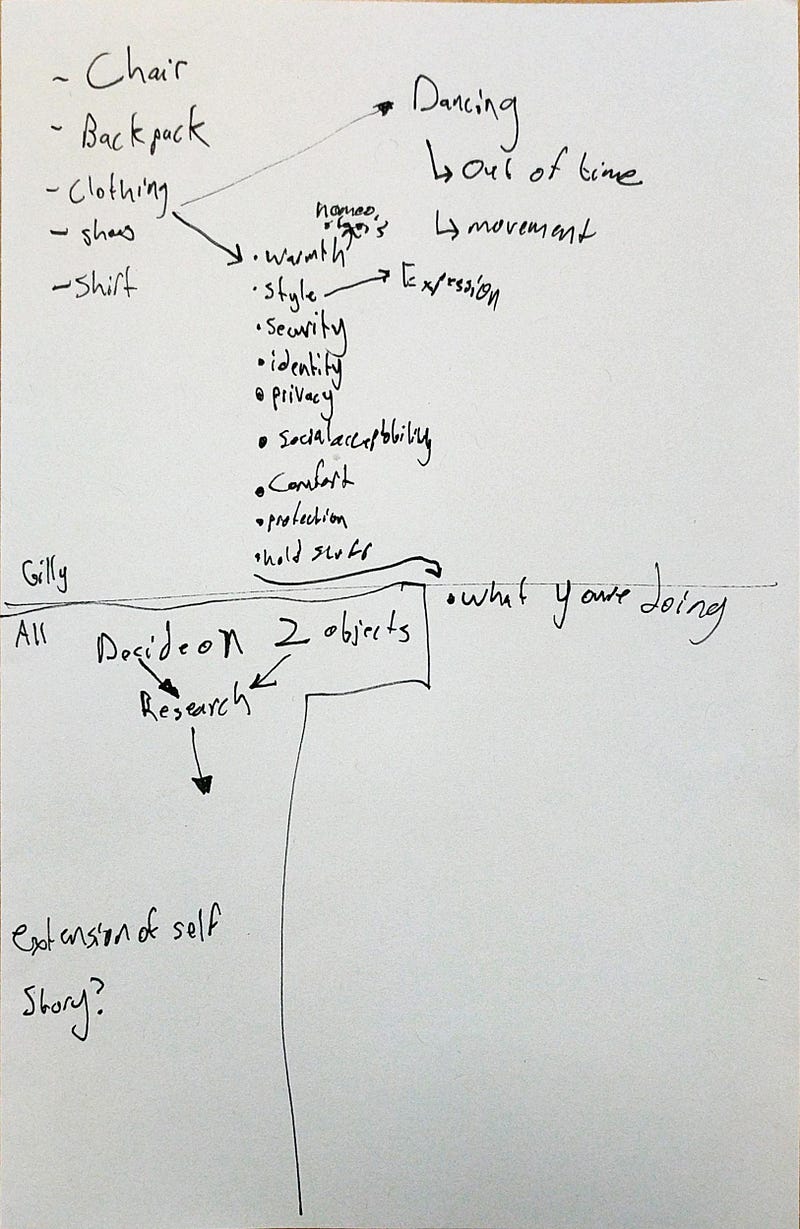 - Chair
- Backpack
- Clothing
- shoes
- Shirt
Dancing
↳ Out of time
↳ movement
• warmth
• style → Expression
• security
• identity
• privacy
• social acceptbility
• Comfort
• protection
• hold stuff
• what you're doing
Gilly
All
Decide on 2 objects
Research
extension of self
Story?